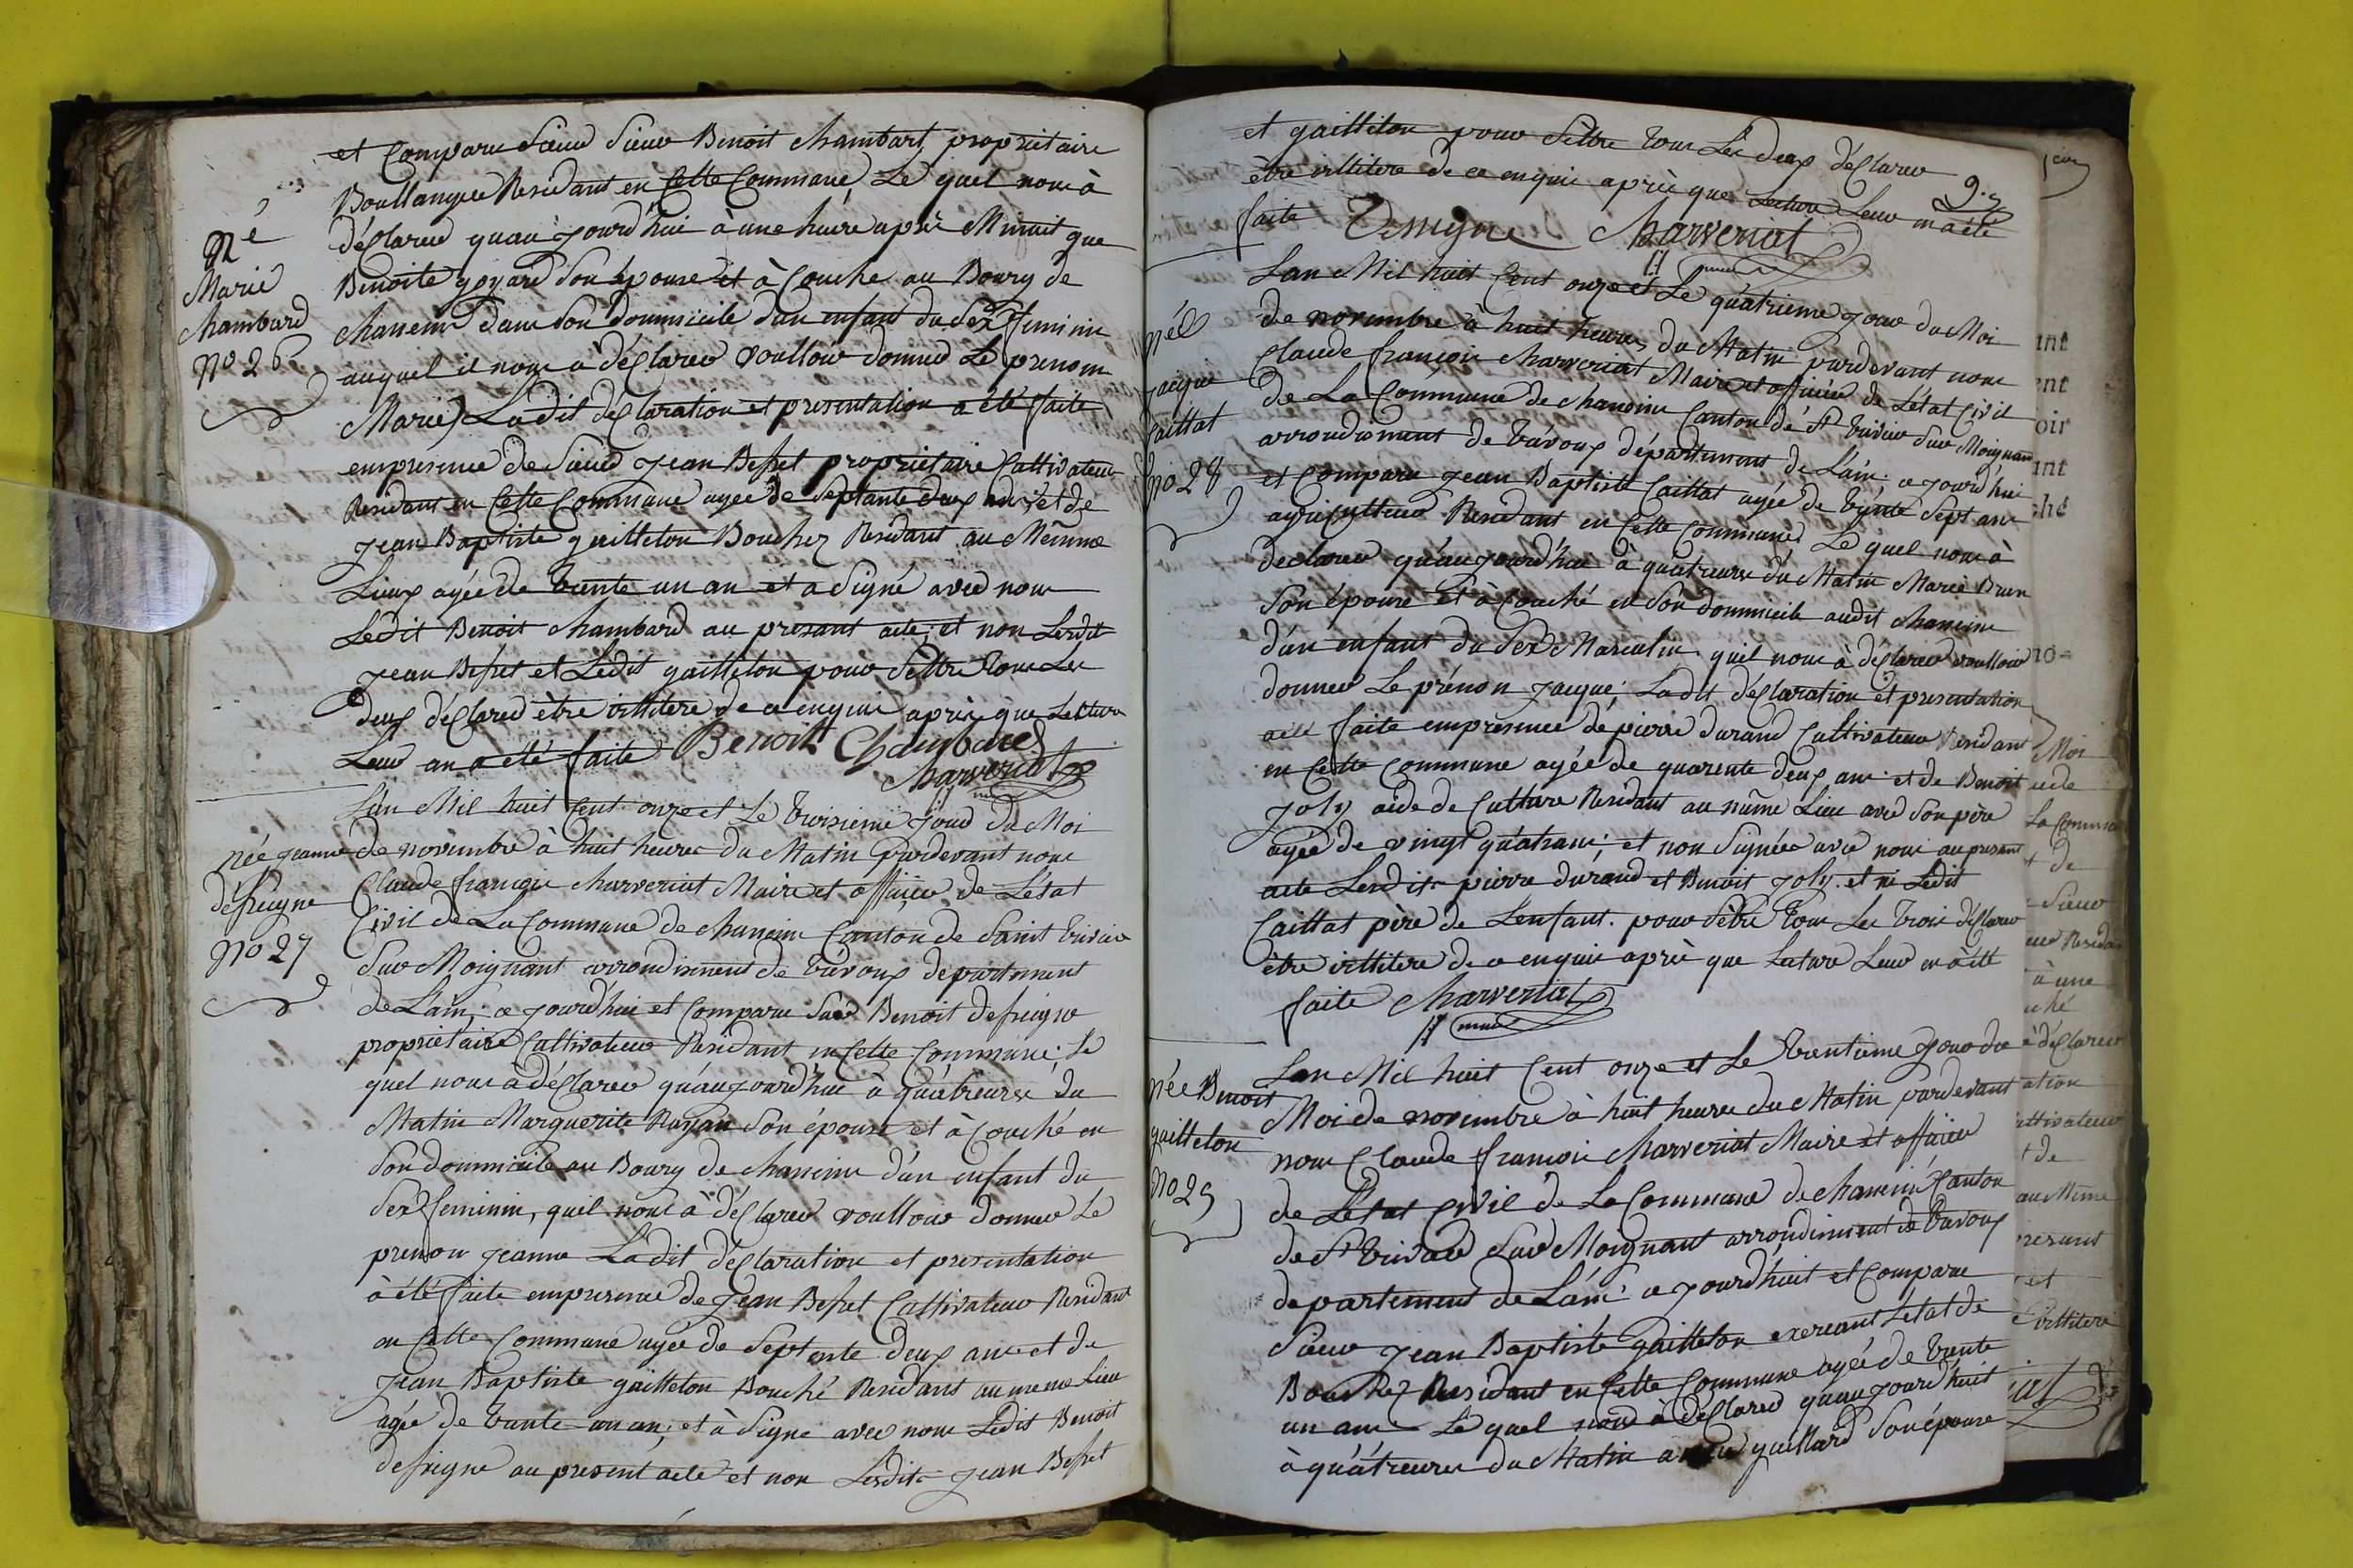 et Comparu Sieur Sieur Benoit Chambart, proprietaire
Boullangee Residant en Cette Commune Le quel nous à
né
déClareud quau Jourd'hui à une heure aprè Minuit que
Marie
Benoite goyard Son épouse et à Couche au Bourg de
Chambard
Chanein dans Son dommicile dun enfant du Sex feminin
no 26
auquel il nous à déClareu voullour donneu Le prenom
Marie, Ladit déClaration et presentation a été faite
empresence de Sieur Jean Befset proprietaire Cultivateur
Residant en Cette Commune agee de Septante deux ans et de
Jean Baptiste guilleton Bouchez Residant au Mêmme
Lieux agée de trente un an et a Signé aved nous
Ledit Benoit Chambard au presant acte; et non Lesdit
Jean Befset et Ledit gailleton pour Settre tous Les
deux déClared être illitere de ce enquis aprie que Lecture
Leur an a été faite Benoitt Chambard
Charveriat
Lan Mil huit Cent onze et Le troisieme Jour du Moi
née Jeanne
de novembre à huit heures du Matin pardevant nous
défreigne
Claude francois Charveriat Maire et offiiceu de Létat
no 27
Civil de La Commune de Chaneins Canton de Saint trivier
Sur Moignant arrondisment de trévoux departement
de Lain, ce Jourd'hui et Comparu Sieur Benoit defreigne
proprietaire Cultivateur Residant en Cette Commune; Le
quel nous à déClareu quaujourd'hui à quatreures du
Matin Marguerite Son épouse et à Couché en
Son dommicile au Bourg de Chaneins d'un enfant du
Sex feminin, quil nous à déClareu voullour donneu Le
prenom Jeanne Ladit déClaration et presentation
à été faite empresence de Jean Befset Cultivateur Residant
en Cette Commune agée de Septente deux ans et de
Jean Baptiste gailleton Bouché Residant au meme Lieu
agée de trante un an; et à Signe avec nous Ledit Benoit
defreigne au present acte et non Lesdits Jean Befset
et gailliton pour Settre tous Les deux déClareu
9.
être illitere de ce enquie aprèe que Lecture Leur en à été
faite Defreigne Charveriat
Lan Mil huit Cent onze et Le quatrieme Jour du Moi
né
de novembre à huit heures du Matin pardevant nous
Jacque
Claude francois Charveriat Maire et offiicée de Létat Civil
Caillat
de La Commune de Chaneins Canton de St trivier Sur Moignan
no 28
arrondisment de trévoux département de Lain. ce Jourd'hui
et Comparu Jean Baptiste Caillat agée de trante Sept ans
agriculteur Residant en Cette Commune, Le quel nous à
declareu quaujourd'hui à quatreures du Matin Marie Brun
Son épouse et à Couché en Son dommicile audit Chaneins
d'un enfant du Sex Masculin quil nous à déClareu voulloir
donneu Le prénon Jacque; Ladit déClaration et presentation
aété faite empresence de pierre durand Cultivateur Residant
en Cette Commune agée de quarente deux ans et de Benoit
Joly aide de Culture Residant au même Lieu avec Son père
agée de vingt quatrans; et non Signée avec nous au presant
acte Lesdits pierre durand et Benoit Joly et ni Ledit
Caillat père de Lenfant. pour Sêtre tous Les trois déClareu
être illitere de ce enquie aprè que Lecture Leur en à été
faite Charveriat
Lan Mil huit Cent onze et Le trentieme Jour du
née Benoit
Moi de novembre à huit heures du Matin pardevant
guilleton
nous Claude francois Charveriat Maire et offiicier
no 29
de Létat Civil de La Commune de Chaneins Canton
de St trivier Sur Moignant arrondisment de trévoux
departement de Lain ce Jourd'huit et Comparu
Sieur Jean Baptiste Gailleton exercant Létat de
Bouchez Residant en Cette Commune agée de trante
un ans Le quel nous à déClareu quaujourd'huit
à quatreures du Matin guillard Son épouse